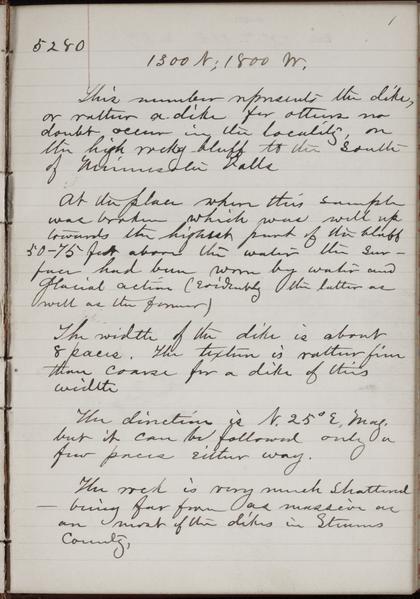 1
5280
1300 N; 1800 W.
This number represents the dike,
or rather a dike for others no
doubt occur in the locality, on
the high rocky bluff to the south
of Minnesota Falls
At the place where this sample
was broken which was well up
towards the highest part of the bluff
50-75 feet above the water the sur-
face had been worn by water and
Glacial action (Evidently the latter as
well as the former)
The width of the dike is about
8 paces. The texture is rather fine
than coarse for a dike of this
width
The direction is N. 25° E, Mag.
but it can be followed only a
few paces either way.
The rock is very much shattered
— being far from as massive as
are most of the dikes in Stearns
County,